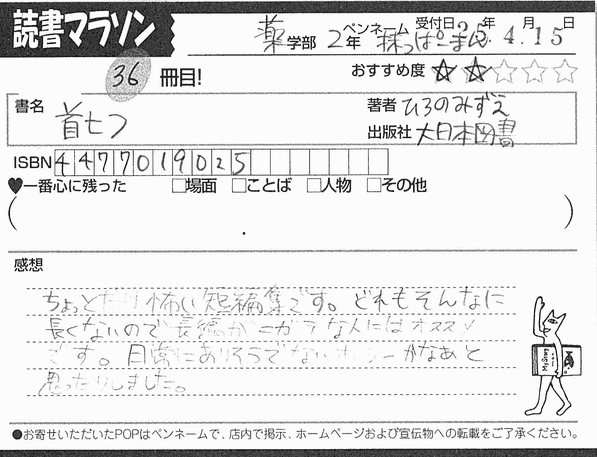 読書マラソン
薬学部 2年 ペンネーム 抹っぱーまん 受付日 05年 4月15日
36 冊目! おすすめ度 ★★☆☆☆
書名 首七つ
著者 ひろのみずえ
出版社 大日本図書
ISBN 4477019025
♥一番心に残った □場面 □ことば □人物 □その他
( )
感想
ちょっとだけ怖い短編集です。どれもそんなに
長くないので長編がニガテな人にはオススメ
です。日常にありそうでないホラーかなあと
思ったりしました。
●お寄せいただいたPOPはペンネームで、店内で掲示、ホームページおよび宣伝物への転載をご了承ください。